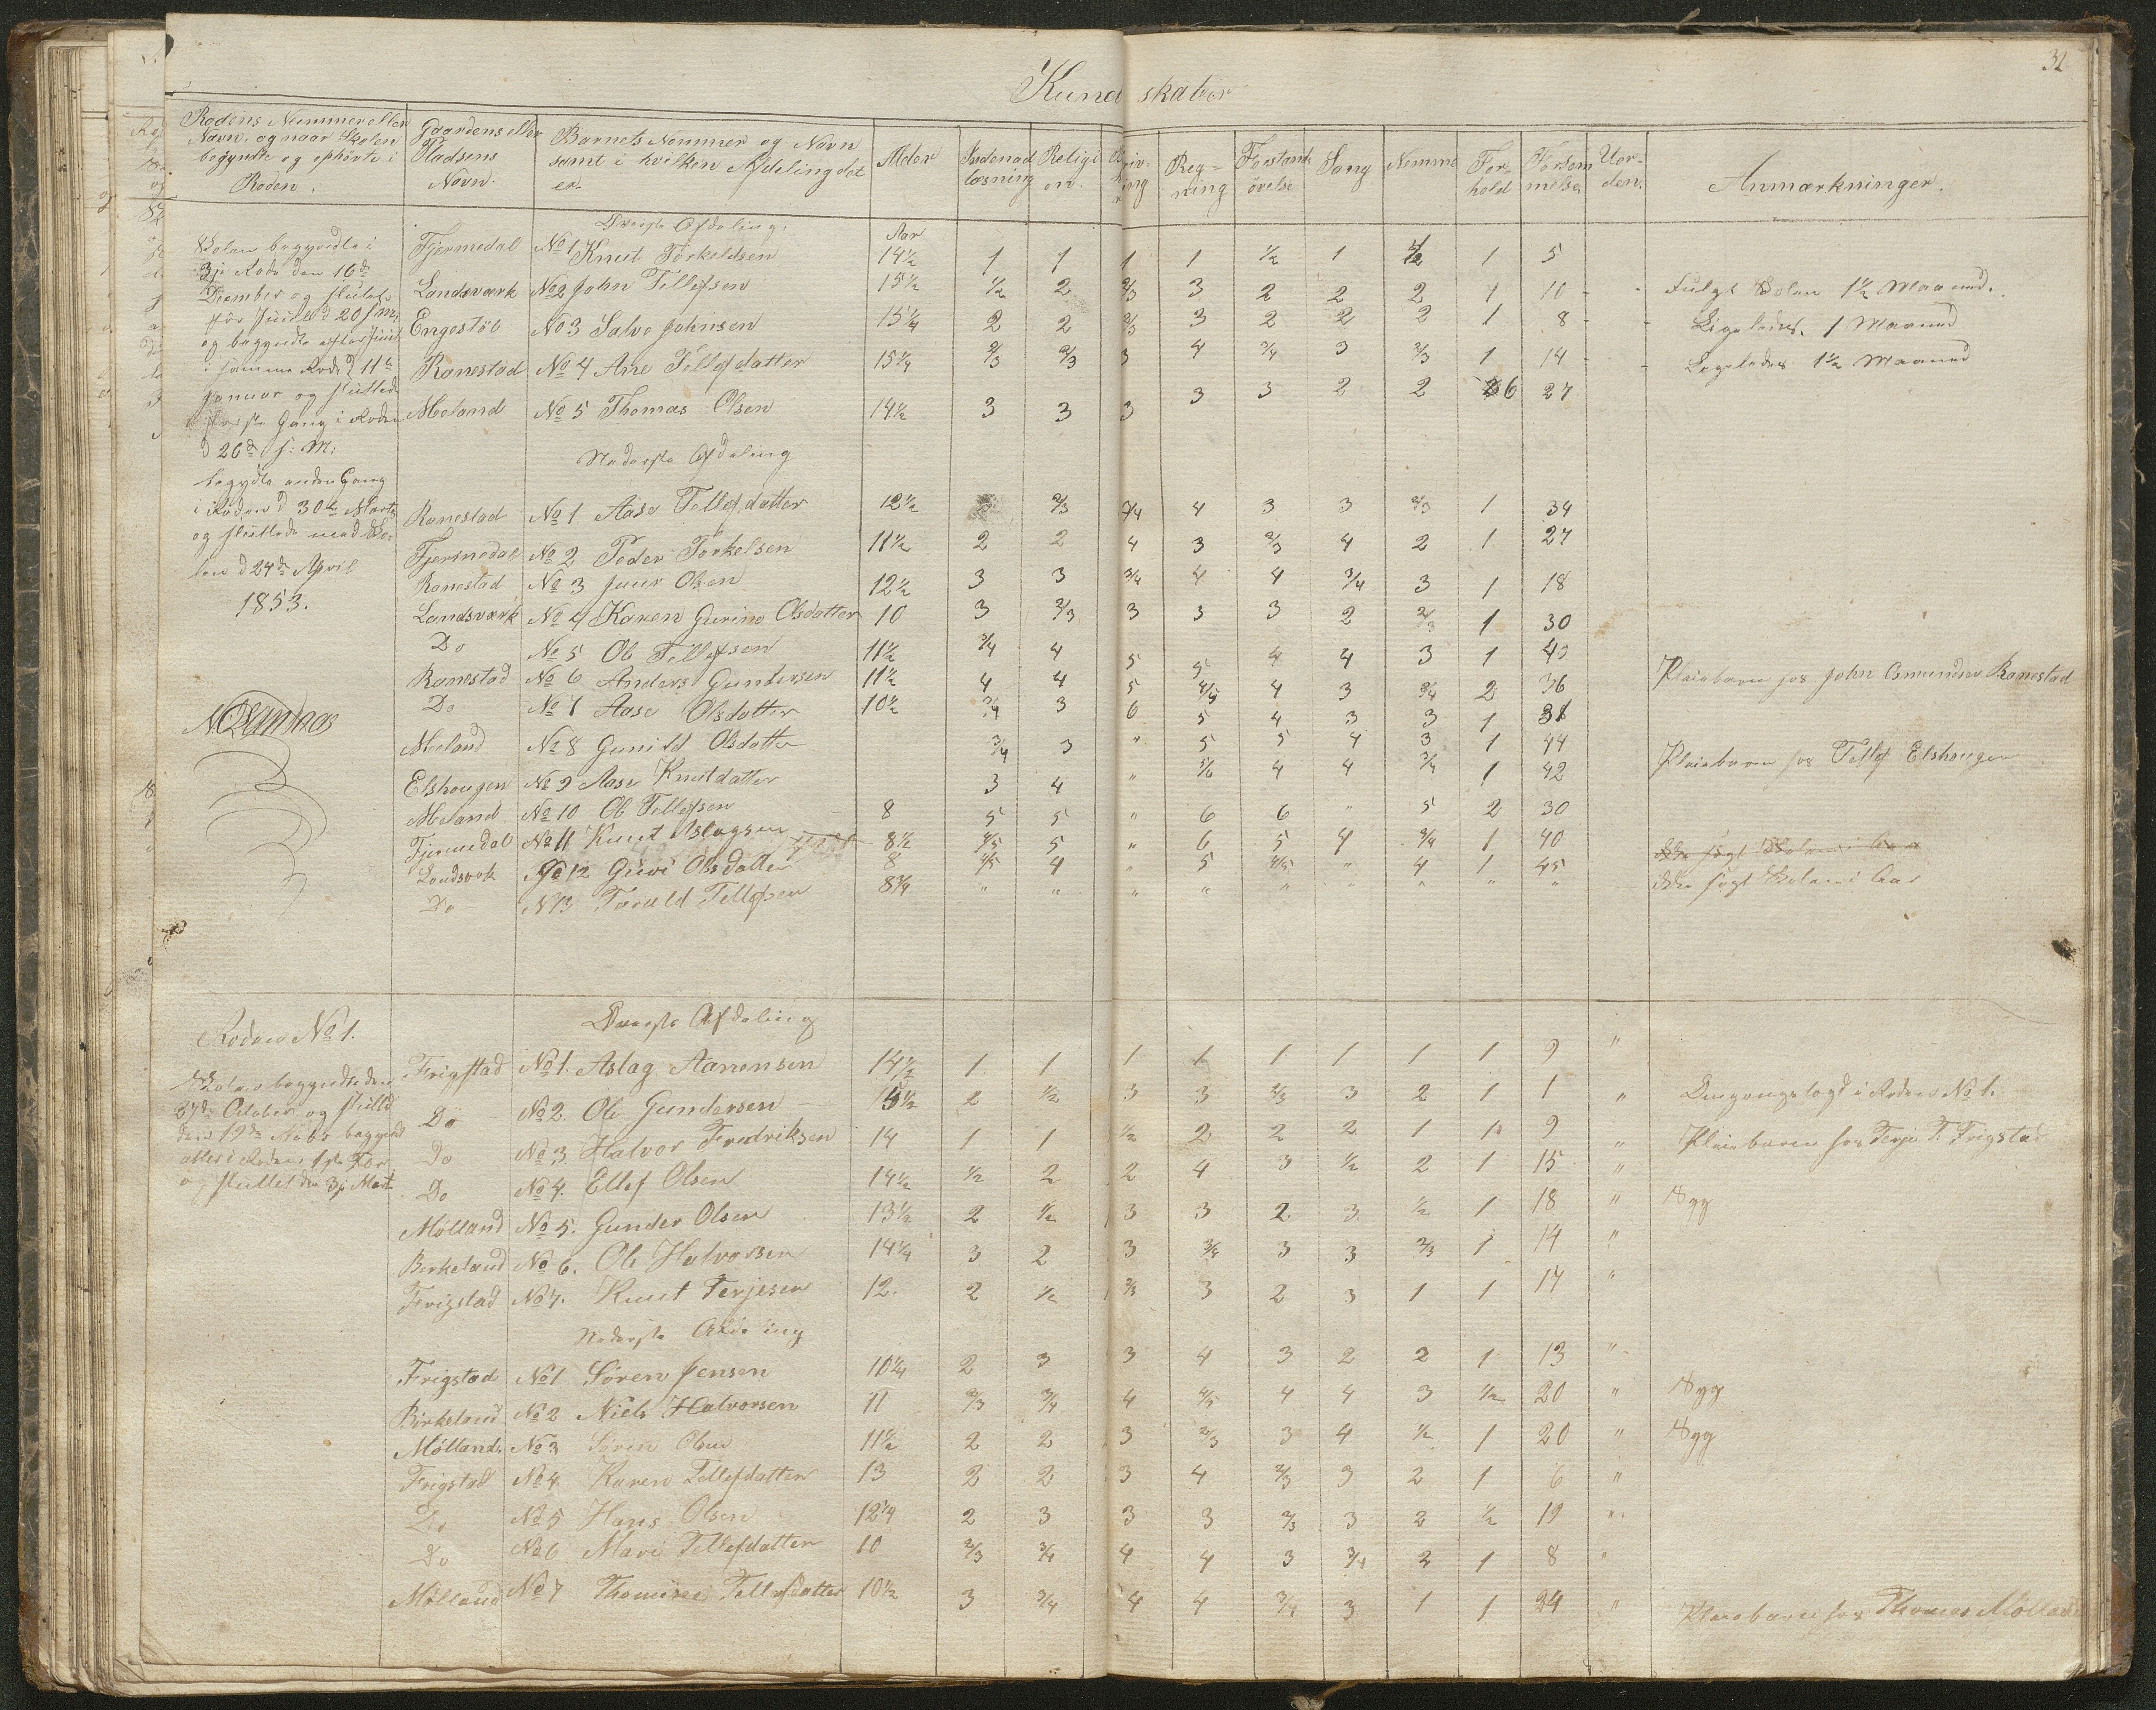 31
Kundskaber
Rodens Nummer eller Navn, og naar Skolen begyndte og ophörte i Roden.
Gaardens eller Pladsens Navn.
Barnets Nummer og Navn samt i hvilken Afdeling det er.
Alder
Indenad læsning
Religion.
Reg=ning
Forstands övelse
Sang
Nemme
Forhold
Forsömmelse
Uorden.
Anmærkninger.
Överste Afdeling.
Aar
Skolen begyndte i
3je Rode den 16de
December og sluttede
før Juul d 20 s.m.
og begyndte efter Juul
i samme Rode d 11te
Januar og sluttede
første Gang i Roden
d 26de s: M:
begyndte anden Gang
i Roden d 30te Marts
og sluttede med Sko-
len d 24de April
1853.
Fjermedal No 1 Knut Torkeldsen 14½ 1 1 1 1 ½ 1 ½ 1 5
Landsværk No 2 John Tellefsen 15½ ½ 2 2/3 3 2 2 2 1 10 - - Fulgt Skolen 1½ Maaned.
Engestöl No 3 Salve Johnsen 15¼ 2 2 2/3 3 2 2 2 1 8 - - Ligeledes. 1 Maaned
Ranestad No 4 Ane Tellefsdatter 15¼ 2/3 2/3 3 4 3/4 3 2/3 1 14 - - Ligeledes 1½ Maaned
Moland No 5 Thomas Olsen 14½ 3 3 3 3 3 2 2 6 27
Nederste Afdeling
Ranestad No 1 Aase Tellefsdatter 12½ 3 2/3 3/4 4 3 3 2/3 1 34
Fjermedal No 2 Peder Torkelsen 11½ 2 2 4 3 2/3 4 2 1 27
Ranestad No 3 Juur Olsen 12½ 3 3 3/4 4 4 3/4 3 1 18
Landsværk No 4 Karen Gurine Olsdatter 10 3 2/3 3 3 3 2 2/3 1 30
Do No 5 Ole Tellefsen 11½ 3/4 4 5 5 4 4 3 1 43
Ranestad No 6 Anders Gundersen 11½ 4 4 5 4/5 4 3 3/4 2 36 Pleiebarn hos John Osmundsen Ranestad
Do No 7 Aase Olsdatter 10½ 3/4 3 6 5 4 3 3 1 38
Moland No 8 Gunild Olsdatter 3/4 3 " 5 5 4 3 1 44
Elshougen No 9 Aase Knutdatter 3 4 " 5/6 4 4 3/4 1 42 Pleiebarn hos Tellef Elshougen
Moland No 10 Ole Tellefsen 8 5 5 " 6 6 " 5 2 30
Fjermedal No 11 Knut Aslagsen 8½ 4/5 5 " 6 5 4 3/4 1 40 Ikke søgt Skolen i Aar
Landsvrk No 12 Guri Olsdatter 8 4/5 4 " 5 4/5 " 4 1 45
Do N 13 Torvald Tellefsen 8¾ " " " " " " " " " Ikke søgt Skolen i Aar
Överste Afdeling
Roden No 1.
Skolen begyndte den
27de October og sluttede
den 19de Nobr begyndt
atter i Roden 1ste Fbr
og sluttet den 3je Marts
Frigstad No 1. Aslag Aanensen 14½ 1 1 1 1 1 1 1 1 9 "
Do No 2. Ole Gundersen 15½ 2 ½ 3 3 2/3 3 2 1 1 " Omgangslagt i Roden No 1.
Do No 3 Halvor Fredriksen 14 1 1 ½ 2 2 2 1 1 9 " Pleiebarn hos Terje T. Frigstad
Do No 4. Ellef Olsen 14½ ½ 2 2 4 3 ½ 2 1 15 "
Mölland No 5. Gunder Olsen 13½ 2 ½ 3 3 2 3 ½ 1 18 " Syg
Birkeland No 6. Ole Halvorsen 14¼ 3 2 3 3/4 3 3 2/3 1 14 "
Frigstad No 7. Knut Terjesen 12. 2 ½ 2/3 3 2 3 1 1 17 "
Nederste Afdeling
Frigstad No 1 Sören Jensen 10¼ 2 3 3 4 3 2 2 1 13 "
Birkeland No 2 Niels Halvorsen 11 2/3 3/4 4 4/5 4 4 3 ½ 20 " Syg
Mölland. No 3 Sören Olsen 11½ 2 2 3 2/3 3 4 ½ 1 20 " Syg
Frigstad No 4 Karen Tellefdatter 13 2 2 3 4 2/3 3 2 1 6 "
Do No 5 Hans Olsen 12¼ 2 3 3 3 2/3 3 2 ½ 19 "
Do No 6 Mari Tellefdatter 10 2/3 3/4 4 4 3 3/4 2 1 8 "
Mölland No 7 Thomine Tellefsdatter 10½ 3 3/4 4 4 3/4 3 1 1 24 " Pleiebarn hos Thomas Mölland